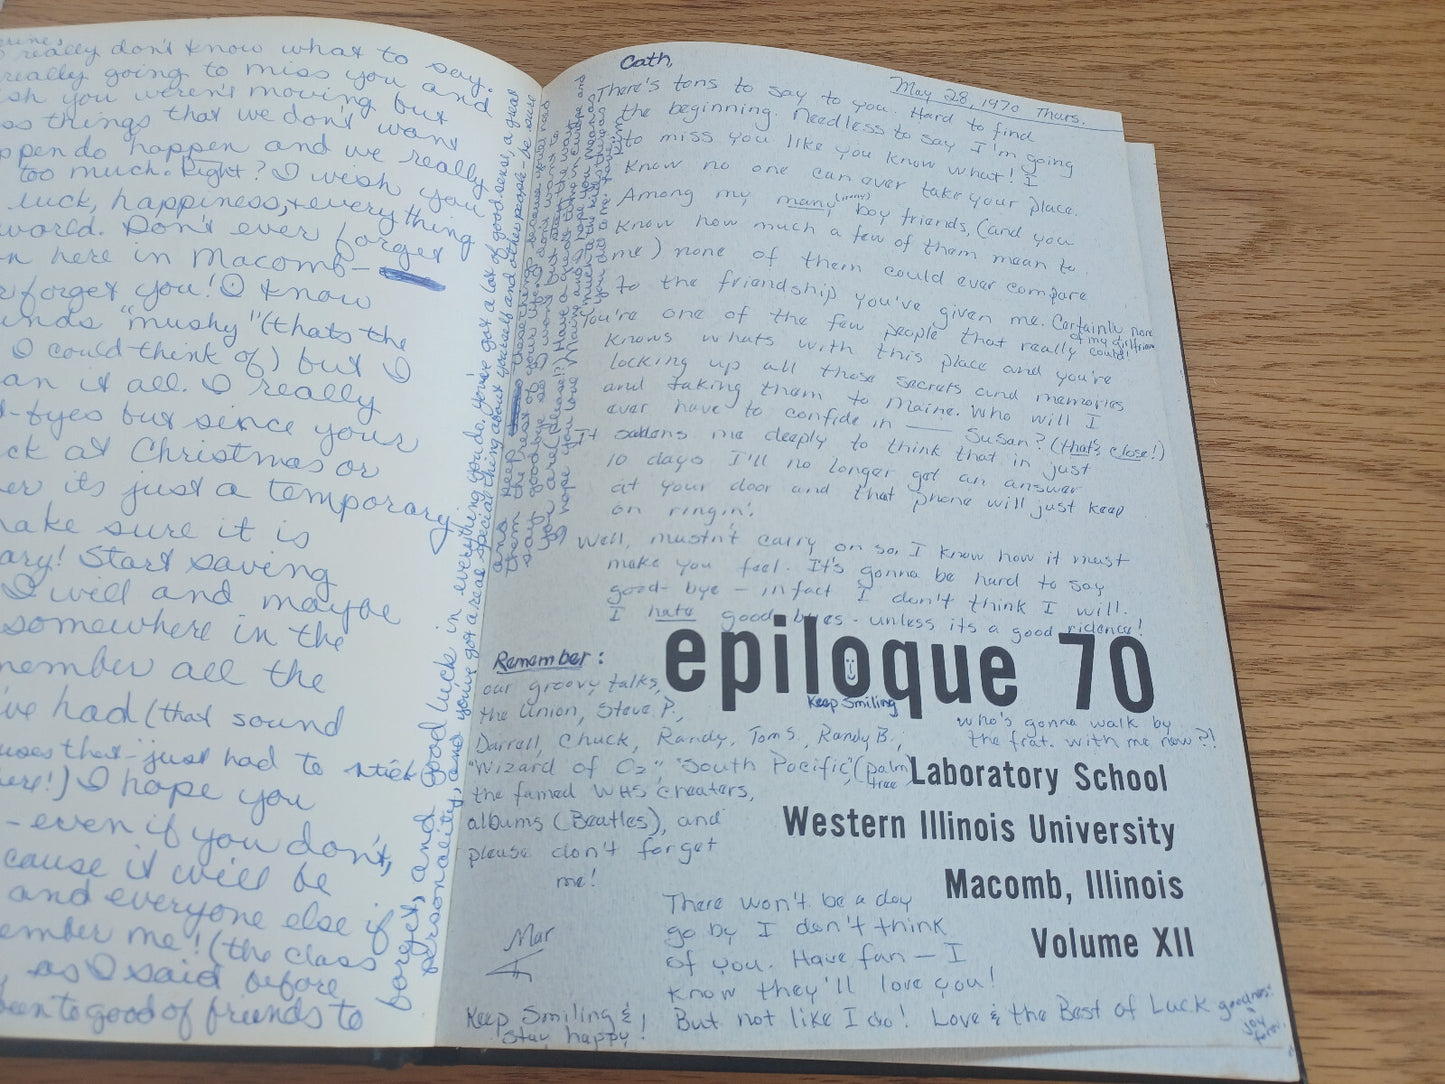 really don't know what to say.
really going to miss you and
ish you weren't moving but
ss things that we don't want
ppen do happen and we really
too much. Right? I wish you
luck, happiness, + everything
world. Don't ever forget
n here in Macomb-
forget you! I know
unds "mushy" (thats the
I could think of) but I
an it all. I really
-byes but since your
ck at Christmas or
er its just a temporary
make sure it is
ary! Start saving
I will and maybe
somewhere in the
member all the
've had (that sound
uses that just had to stick
ere!) I hope you
- even if you don't,
cause it will be
and everyone else if
ember me! (the class
, as I said before
been to good of friends to
forget, and good luck in everything you do, you've got a lot of good sense, a great
personality, and you've got a real special thing about yourself and other people - be sure
and keep these things because you'll need
them the rest of your life. I don't want to
say goodbye so I won't but stay the way
you are (please!) Have a great time in Europe and
Maine and I hope you mean as
I hope you love
much to the kids there as
you did to me.
Cath,
May 28, 1970 Thurs.
There's tons to say to you. Hard to find
the beginning. Needless to say I'm going
to miss you like you know what! I
know no one can ever take your place.
Among my many, (many) boy friends, (and you
know how much a few of them mean to
me) none of them could ever compare
to the friendship you've given me. Certainly none
of my girlfriends
could!
You're one of the few people that really
knows whats with this place and you're
locking up all those secrets and memories
and taking them to Maine. Who will I
ever have to confide in ____ Susan? (that's close!)
It saddens me deeply to think that in just
10 days I'll no longer get an answer
at your door and that phone will just keep
on ringin'.
Well, mustn't carry on so, I know how it must
make you feel. It's gonna be hard to say
good-bye - infact I don't think I will.
I hate good byes - unless its a good ridence!
epiloque 70
Keep Smiling
Remember:
our groovy talks,
the Union, Steve P.,
Darrell, Chuck, Randy, Tom S., Randy B.,
"Wizard of Oz", "South Pacific", (palm
tree)
the famed WHS creaters,
albums (Beatles), and
please don't forget
me!
who's gonna walk by
the frat. with me now?!
Laboratory School
Western Illinois University
Macomb, Illinois
Volume XII
There won't be a day
go by I don't think
of you. Have fun - I
know they'll love you!
But not like I do! Love & the Best of Luck
goodness!
Joy
Mar
Keep Smiling &
Stay happy!